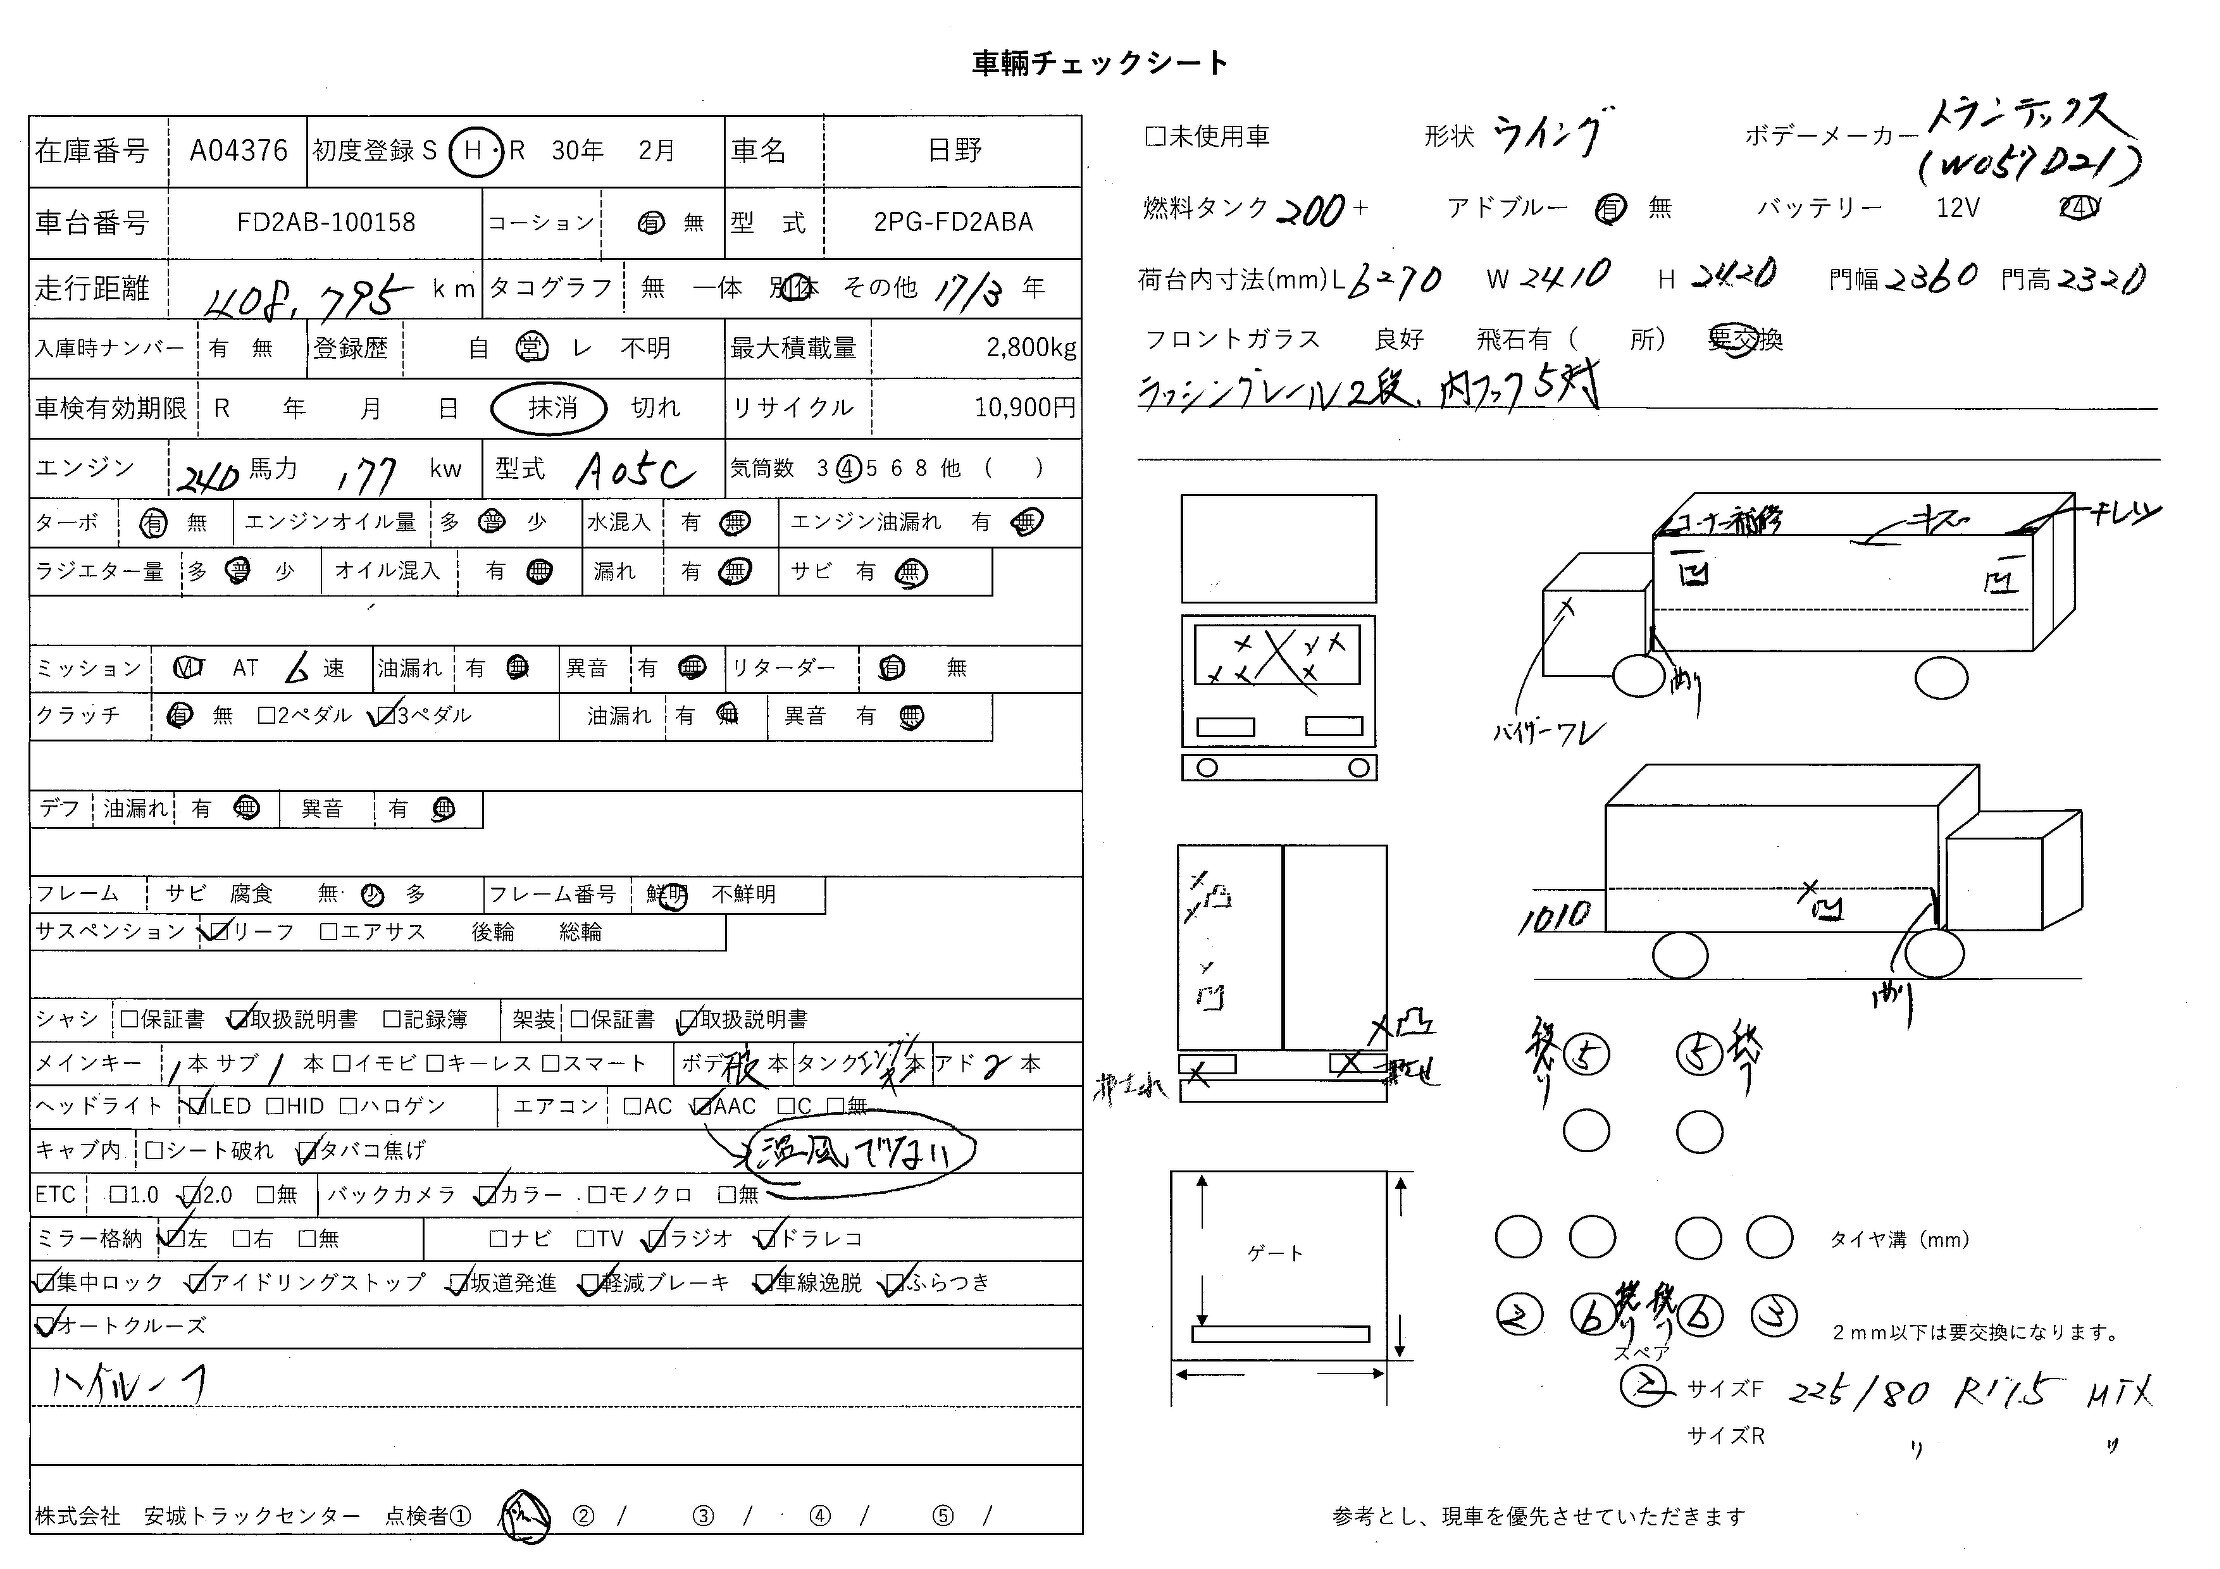 車輛チェックシート
在庫番号 A04376 初度登録 S H・R 30年 2月 車名 日野
車台番号 FD2AB-100158 コーション 有 無 型 式 2PG-FD2ABA
走行距離 408,795 km タコグラフ 無 一体 別体 その他 17/3 年
入庫時ナンバー 有 無 登録歴 自 営 レ 不明 最大積載量 2,800kg
車検有効期限 R 年 月 日 抹消 切れ リサイクル 10,900円
エンジン 240 馬力 177 kw 型式 A05C 気筒数 3 4 5 6 8 他 ( )
ターボ 有 無 エンジンオイル量 多 普 少 水混入 有 無 エンジン油漏れ 有 無
ラジエター量 多 普 少 オイル混入 有 無 漏れ 有 無 サビ 有 無
ミッション MT AT 6 速 油漏れ 有 無 異音 有 無 リターダー 有 無
クラッチ 有 無 □2ペダル ☑3ペダル 油漏れ 有 無 異音 有 無
デフ 油漏れ 有 無 異音 有 無
フレーム サビ 腐食 無・少 多 フレーム番号 鮮明 不鮮明
サスペンション ☑リーフ □エアサス 後輪 総輪
シャシ □保証書 ☑取扱説明書 □記録簿 架装 □保証書 ☑取扱説明書
メインキー 1本 サブ 1 本 □イモビ □キーレス □スマート ボデ 本 タンク 本 アド 2 本
ヘッドライト ☑LED □HID □ハロゲン エアコン □AC ☑AAC □C □無
キャブ内 □シート破れ ☑タバコ焦げ 温風でない
ETC □1.0 ☑2.0 □無 バックカメラ ☑カラー □モノクロ □無
ミラー格納 ☑左 □右 □無 □ナビ □TV ☑ラジオ ☑ドラレコ
☑集中ロック ☑アイドリングストップ ☑坂道発進 ☑軽減ブレーキ ☑車線逸脱 ☑ふらつき
☑オートクルーズ
ハイルーフ
株式会社 安城トラックセンター 点検者① ② / ③ / ④ / ⑤ /
□未使用車 形状 ウイング ボデーメーカー トランテックス
(W057D21)
燃料タンク 200 + アドブルー 有 無 バッテリー 12V 24V
荷台内寸法(mm)L 6270 W 2410 H 2420 門幅 2360 門高 2320
フロントガラス 良好 飛石有 ( 所) 要交換
ラッシングレール2段、内フック5対
コーナー補修 キズ キレツ
凹 凹
バイザーワレ
凹
1010
凸
凹
凸
ゲート
5 5
タイヤ溝 (mm)
2 6 6 3
2mm以下は要交換になります。
スペア
2 サイズF 225/80 R17.5 MIX
サイズR 〃 〃
参考とし、現車を優先させていただきます